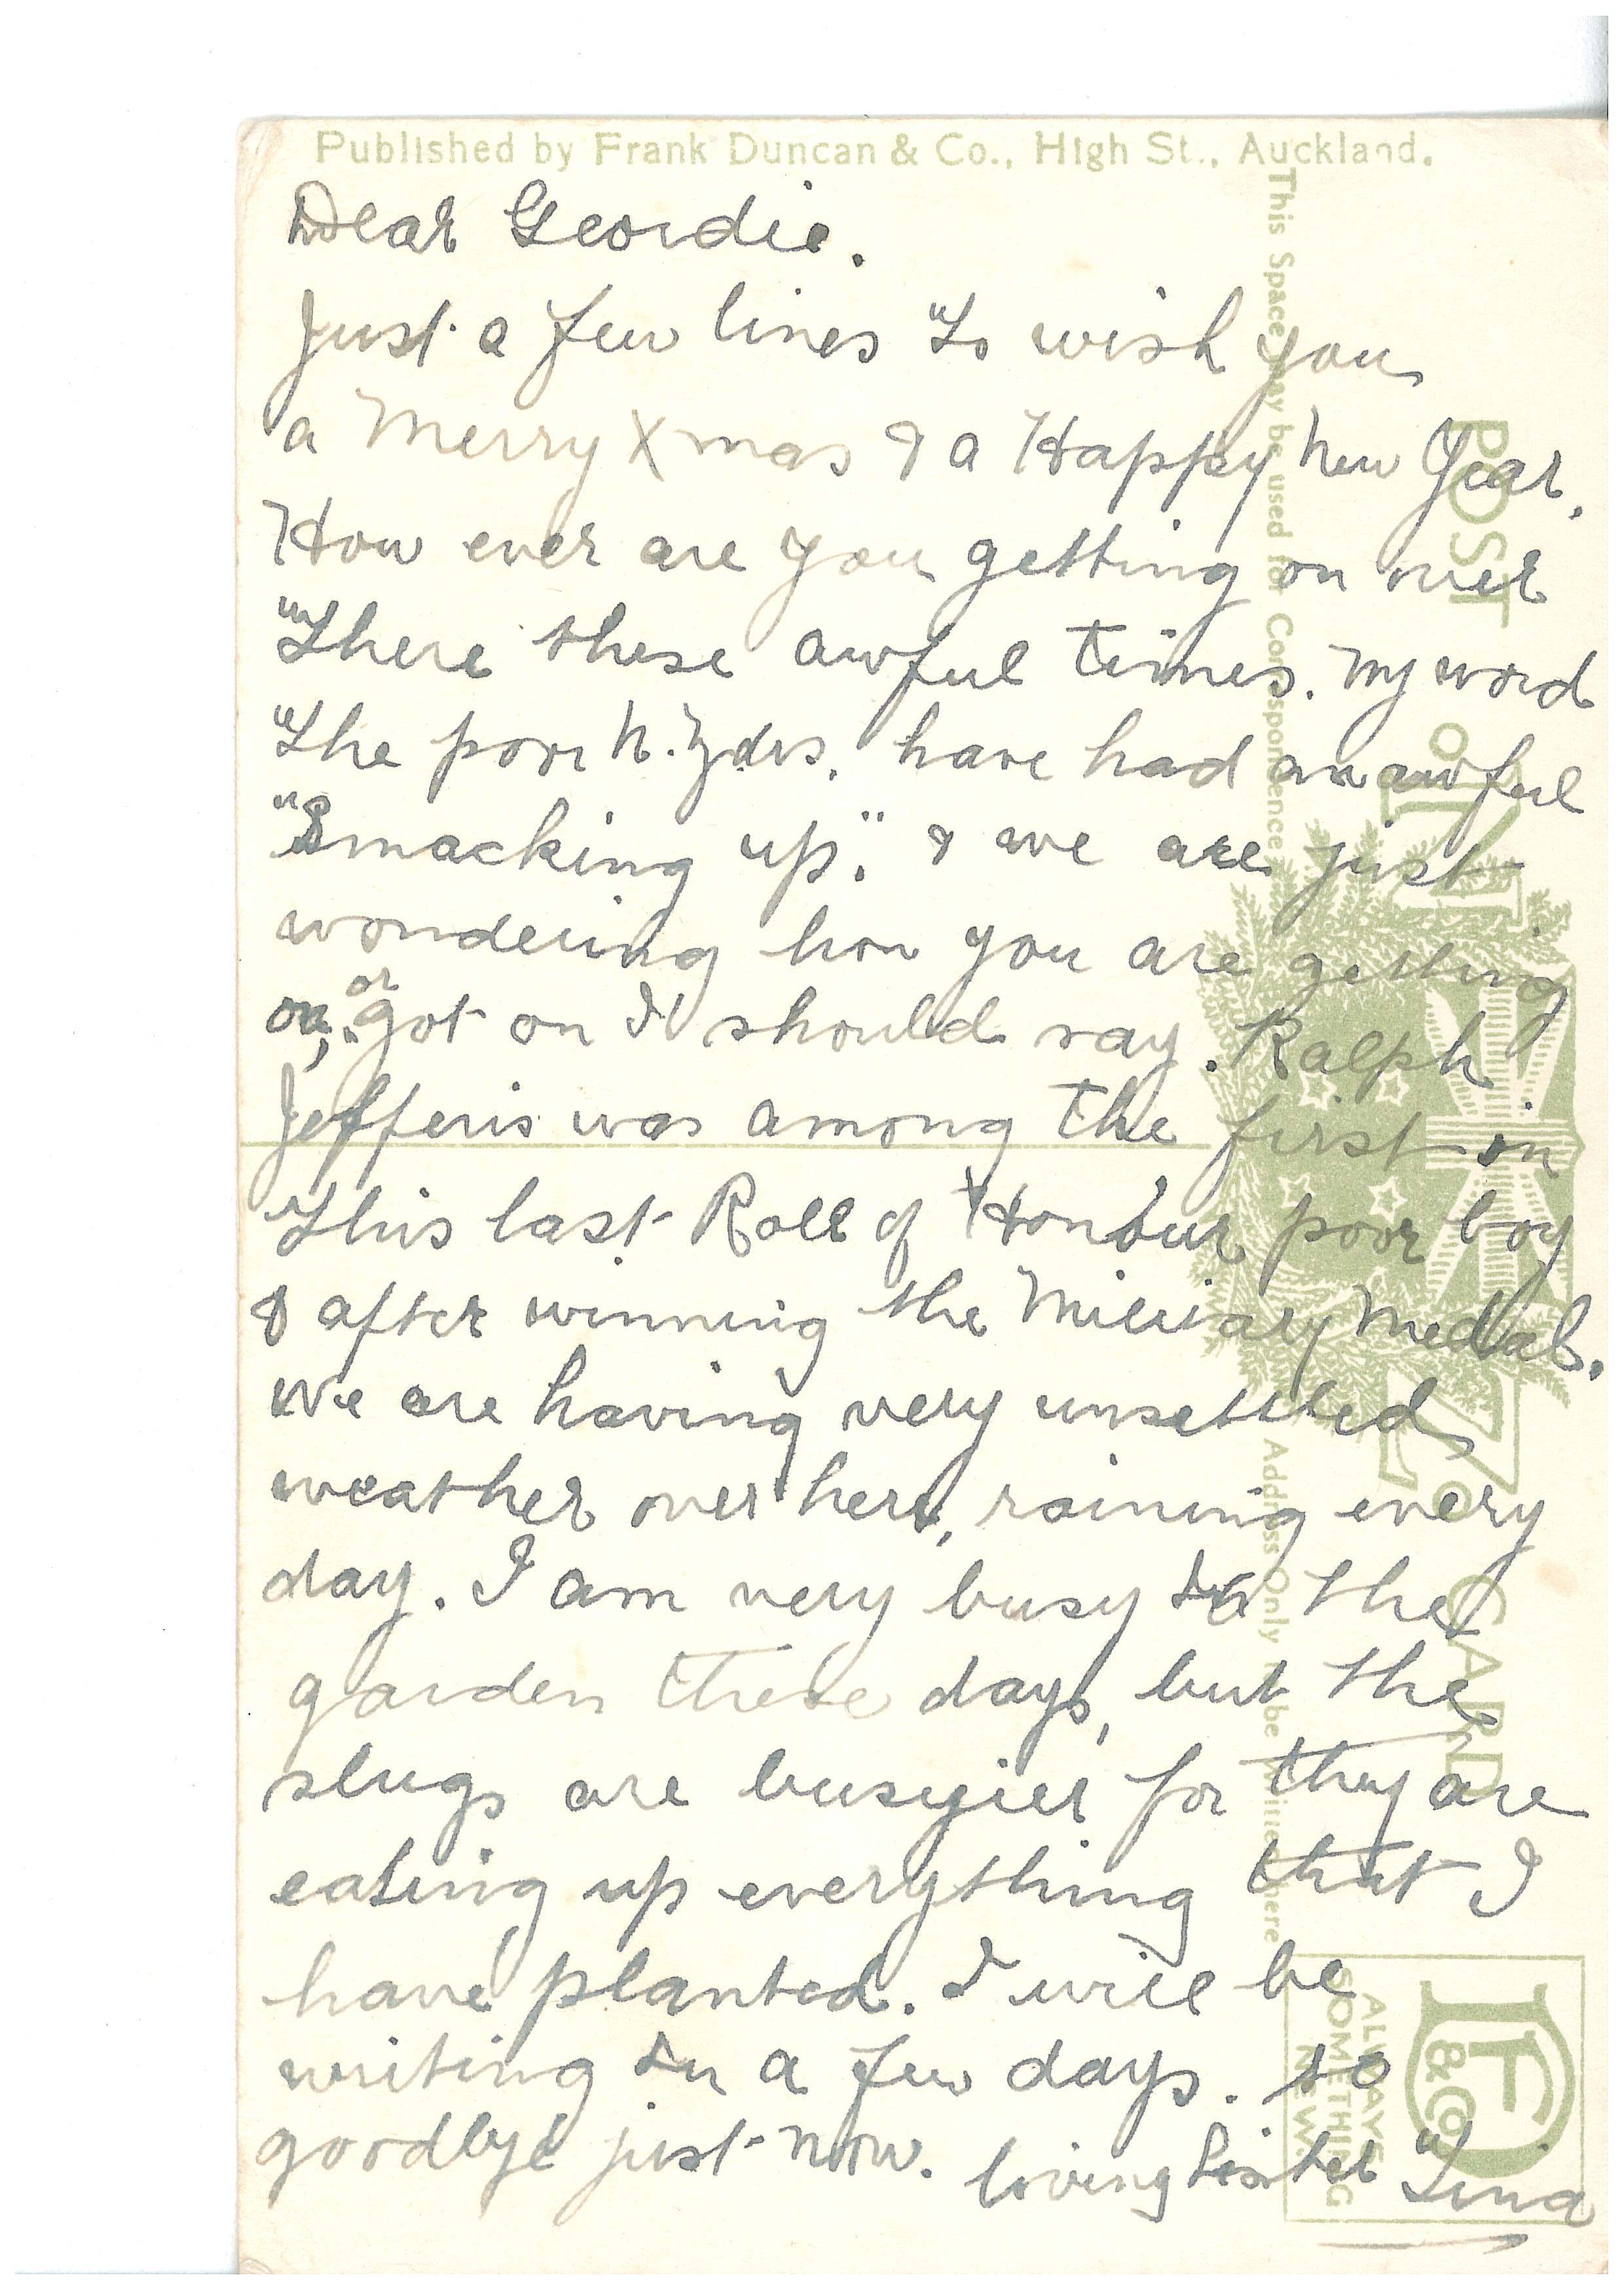 Published by Frank Duncan & Co., High St., Auckland.
Dear Geordie.
Just a few lines to wish you
a Merry Xmas & a Happy New Year.
How ever are you getting on over
there these awful times. My word
the poor N. Zdrs. have had an awful
"Smacking up". & we are just
wondering how you are getting
on, or got on I should say. Ralph
Jefferis was among the first in
this last Roll of Honour poor boy
& after winning the Military Medal.
We are having very unsettled
weather over here, raining every
day. I am very busy in the
garden these days, but the
slugs are busyier for they are
eating up everything that I
have planted. I will be
writing in a few days. so
goodbye just now. loving Sister Tina
This Space may be used for Correspondence
Address Only to be Written here
POST CARD
OF
N Z
FD & Co
ALWAYS
SOMETHING
NEW.